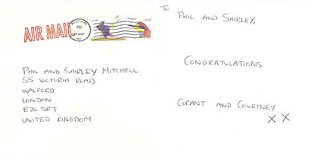 AIR MAIL
PM
PHIL AND SHIRLEY MITCHELL
55 VICTORIA ROAD
WALFORD
LONDON
E20 5RT
UNITED KINGDOM
TO
PHIL AND SHIRLEY,
CONGRATULATIONS
GRANT AND COURTNEY
X X